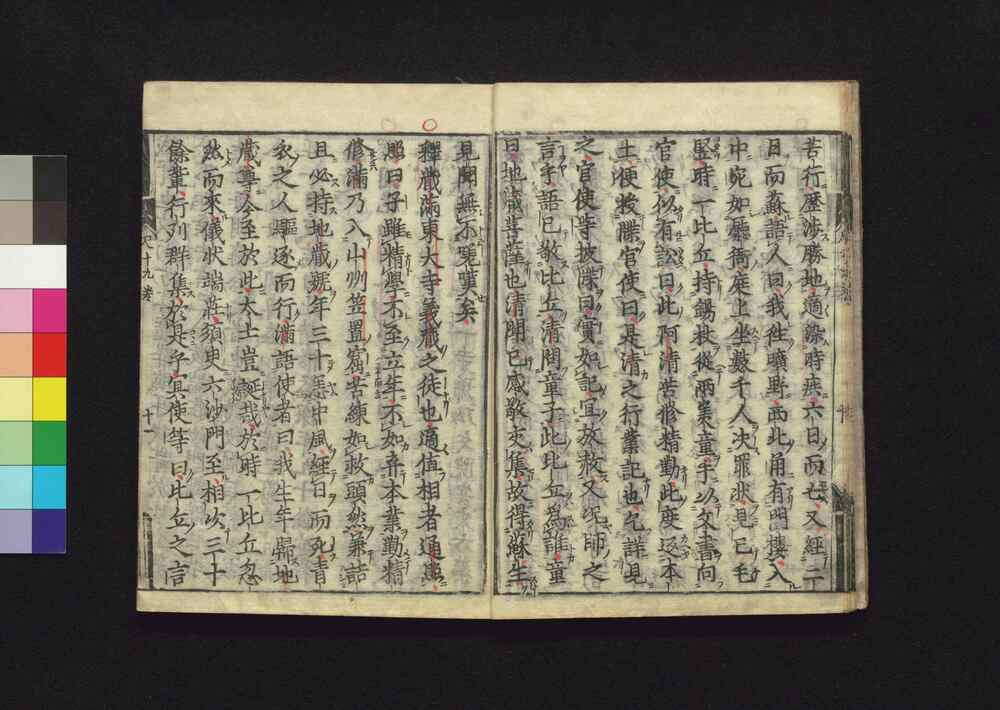 苦行歷渉勝地適染時疾六日而亡又經二
日而蘓語人曰我徃曠野西北角有門樓入
中宛如廳衙庭上坐數千人决罪狀見已毛
竪時一比丘持錫杖從兩美童手以文書向
官使似有訟曰此阿清苦修精勤此度返本
土便披牒官使曰是清之行業記也乞詳見
之官使等披牒曰實如記冝放赦又况師之
言乎語已敬比丘清問童子此比丘為誰童
曰地藏菩薩也清聞已感敬交集故得蘇生
見聞無不冤矣
釋藏滿東大寺義藏之徒也適值相者通
照曰子雖精學不至立年不如弃本業勤精
修滿乃入山州笠置窟苦練如救頭然兼誥
且必持地藏號年三十患中風經日而死青
衣之人驅逐而行滿語使者曰我生年歸地
藏尊今至於此大士豈誕哉於時一比丘忽
然而來儀狀端莊須史六沙門至相从三十
餘輩行列群集於是乎冥使等曰此丘之言
十九卷
十一